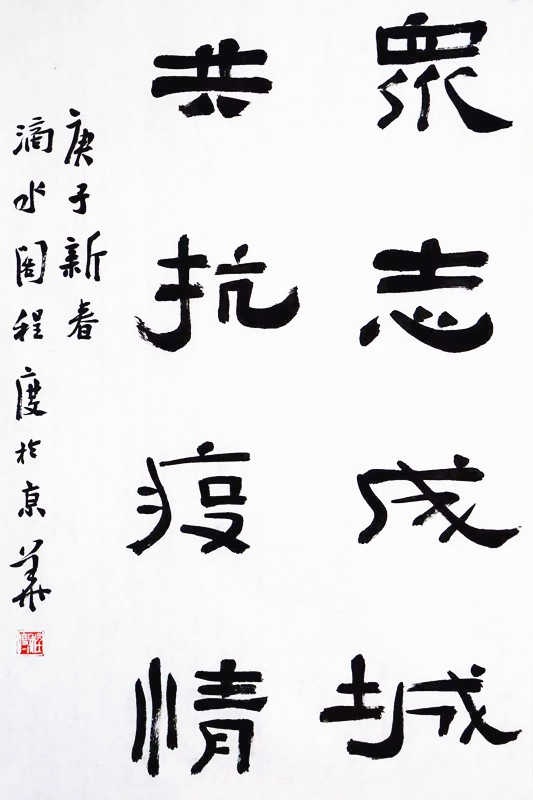 眾志成城
共抗疫情
庚子新春
滴水阁程度於京華